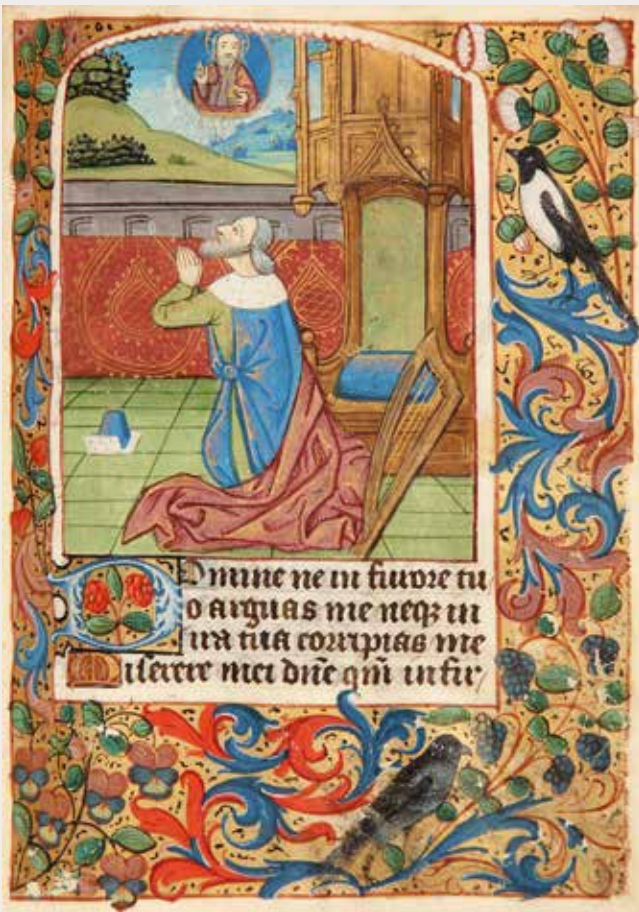 Domine ne in furore tu
o arguas me neqꝫ in
ira tua corripias me
Miserere mei dn̄e qm̄ infir